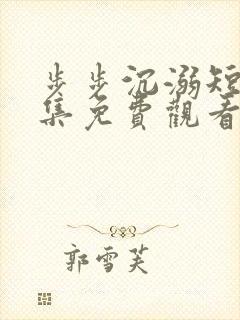 步步沉溺短
集免費觀看
郭雪芙